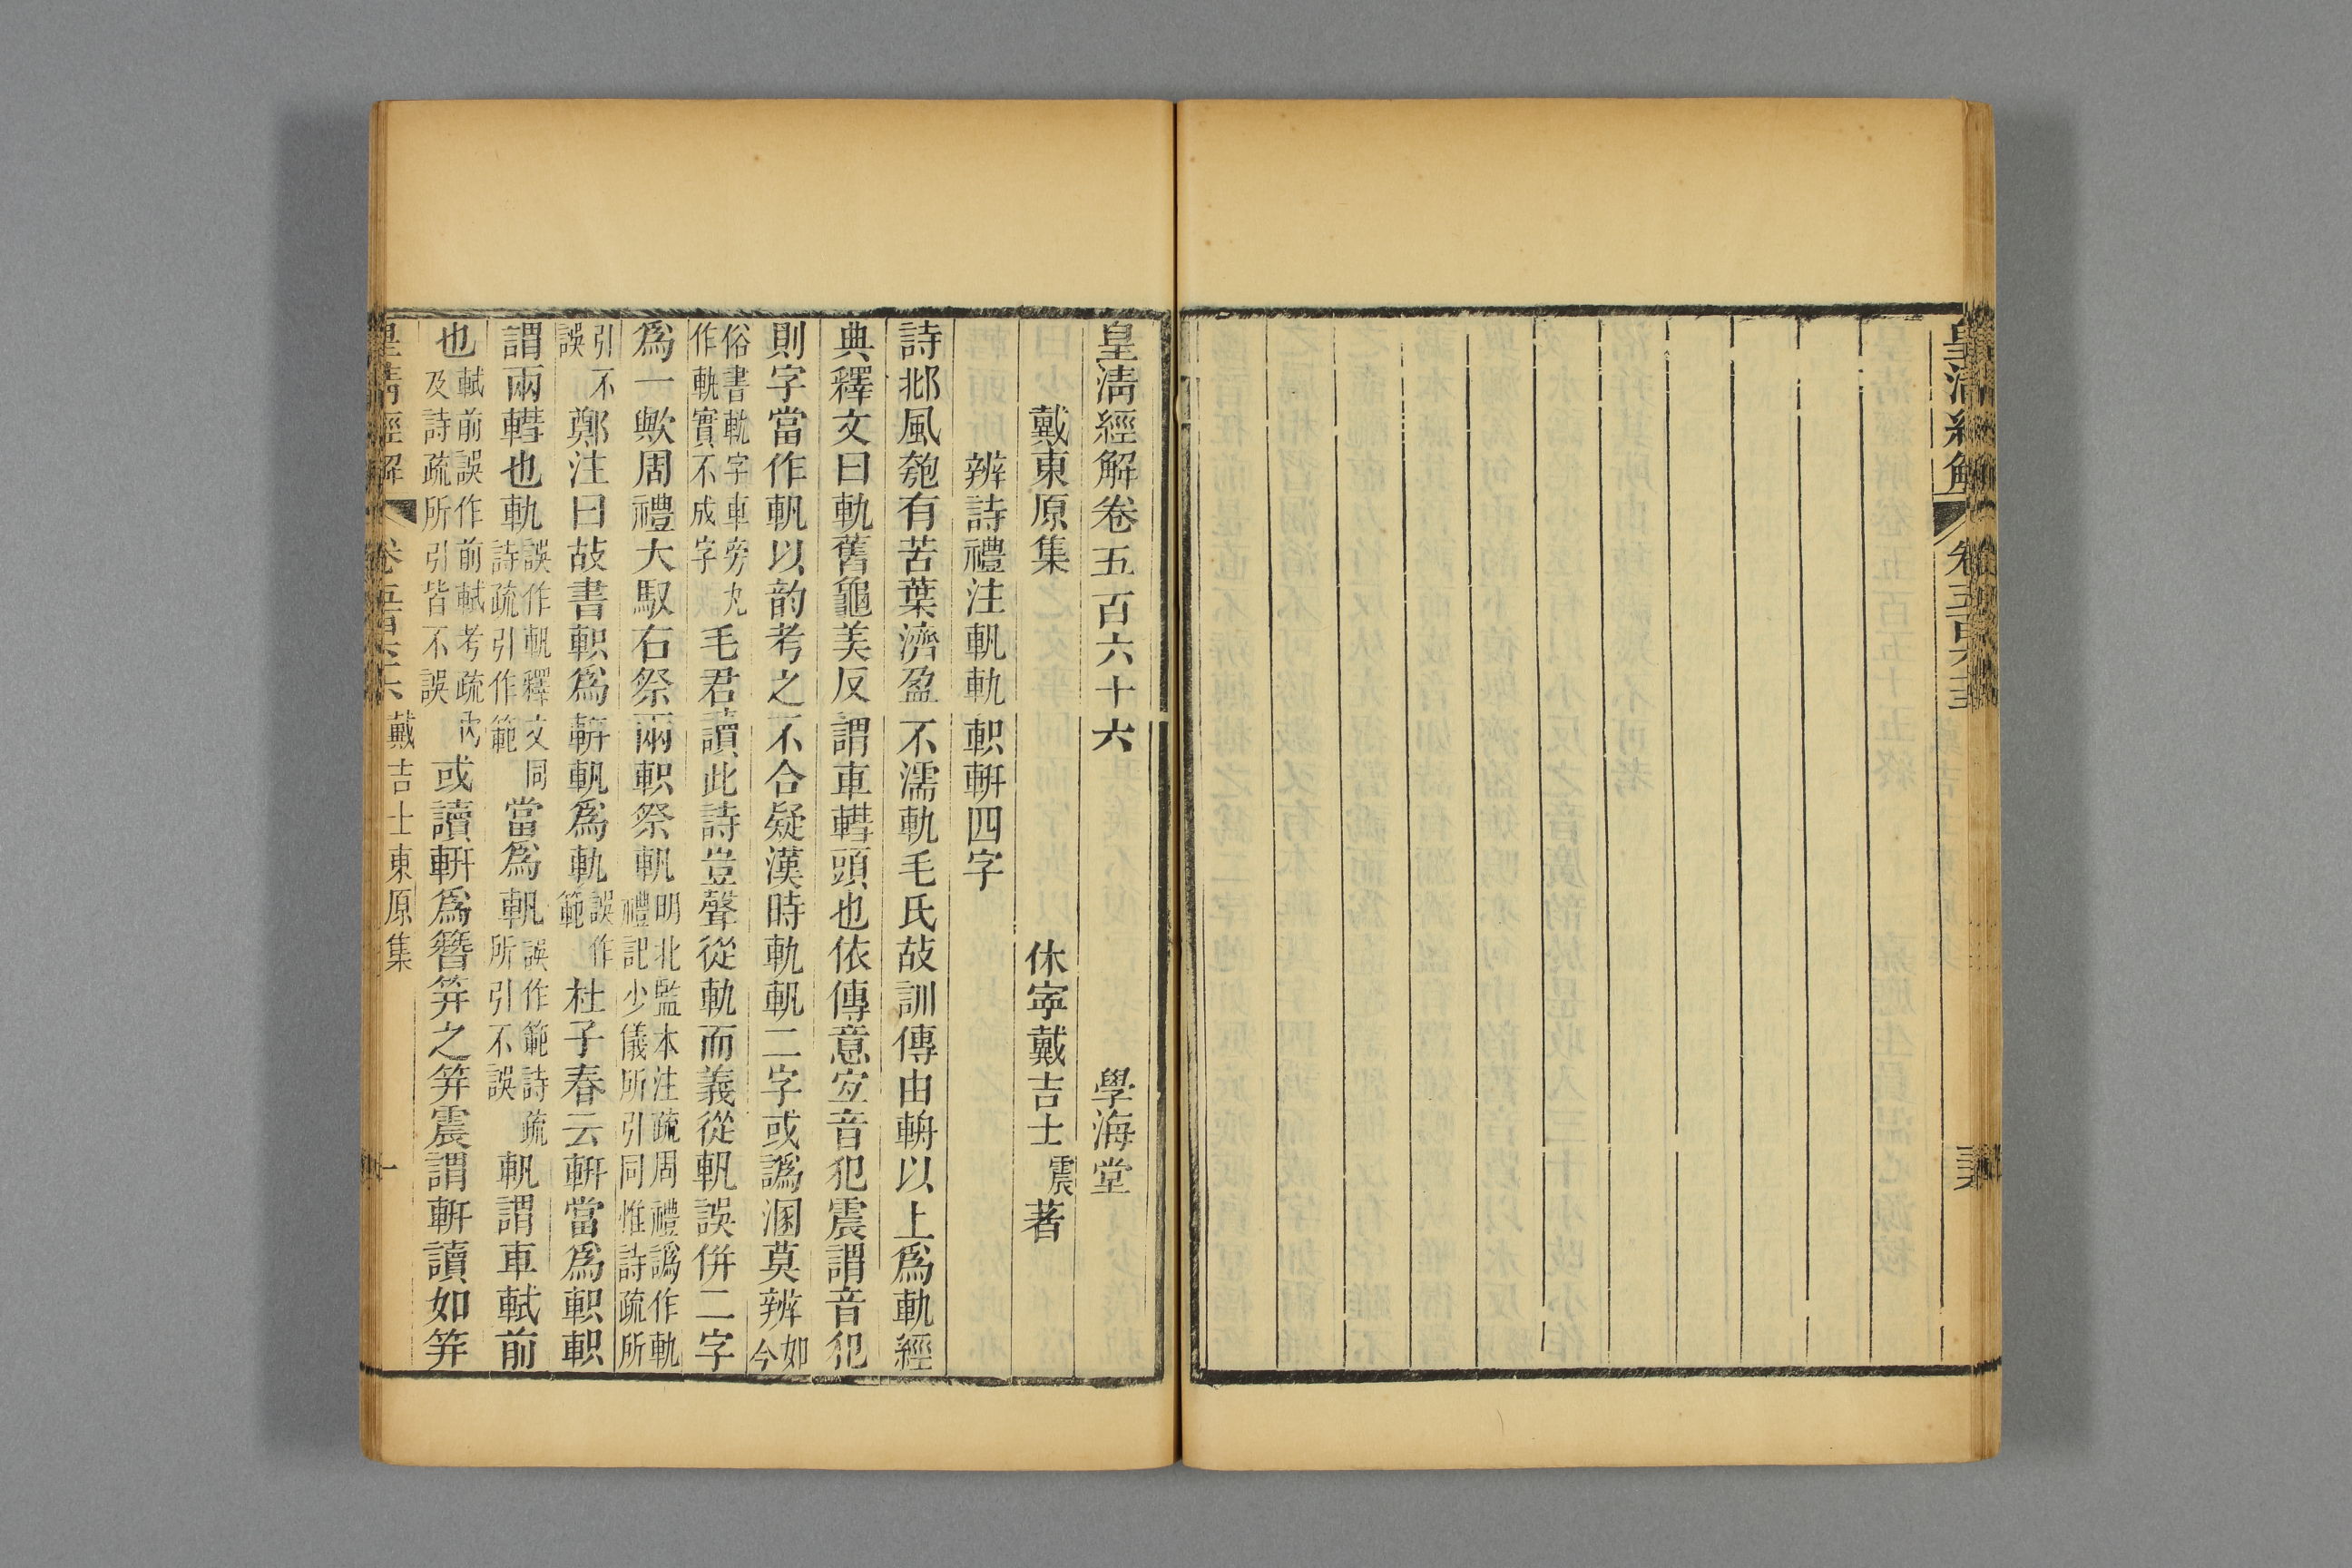 皇清經解卷五百六十六　學海堂
戴東原集　休寧戴吉士震著
辨詩禮注軓軌軹軿四字
詩邶風匏有苦葉濟盈不濡軌毛氏故訓傳由輈以上為軌經
典釋文曰軌舊龜美反謂車轊頭也依傳意宐音犯震謂音犯
則字當作軓以韵考之不合疑漢時軌軓二字或譌溷莫辨如今
俗書軌字車旁九作軓實不成字毛君讀此詩豈聲從軌而義從軓誤併二字
為一歟周禮大馭右祭兩軹祭軓明北監本注疏周禮譌作軌禮記少儀所引同惟詩疏所
引不誤鄭注曰故書軹為軿軓為軌誤作範杜子春云軿當為軹軹
謂兩轊也軌誤作軓釋文同詩疏引作範當為軓誤作範詩疏所引不誤軓謂車軾前
也軾前誤作前軾考疏內及詩疏所引皆不誤或讀軿為簪笄之笄震謂軿讀如笄
皇清經解　卷五百六十六　戴吉士東原集　一